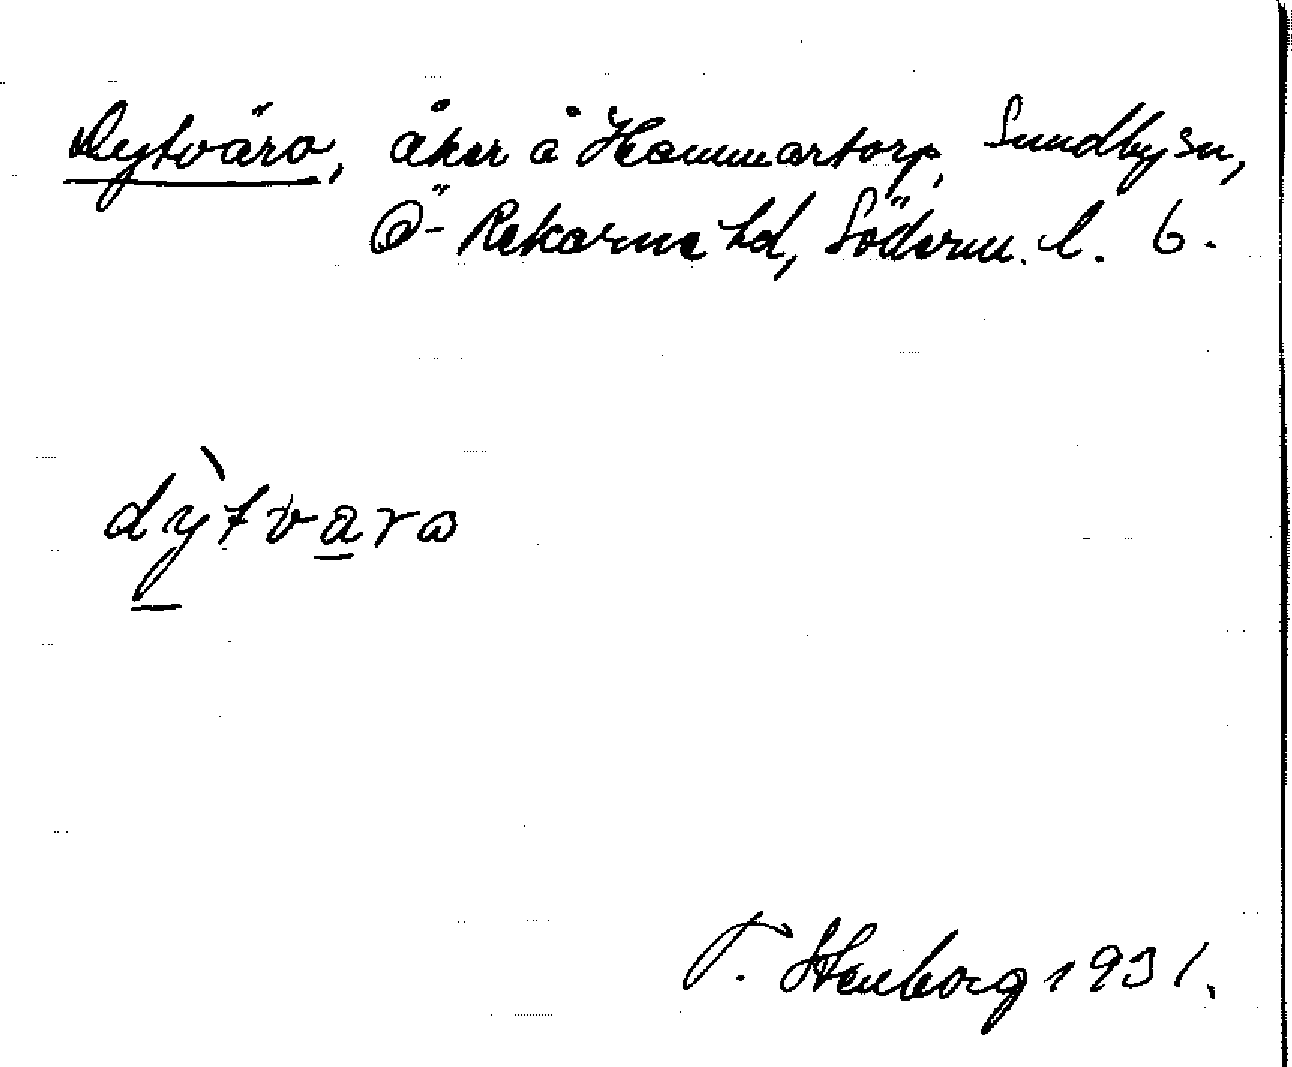 Dytvära, åker å Hammartorp, Sundby sn,
Ö-Rekarne hd, Söderm. l. 6.
dỳtvara
T. Stenborg 1931.